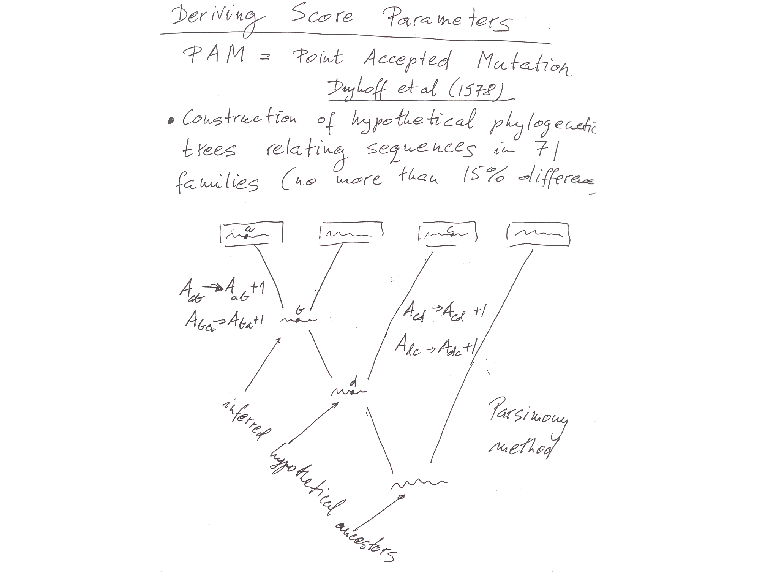 Deriving Score Parameters
PAM = Point Accepted Mutation
Dayhoff et al (1978)
• Construction of hypothetical phylogenetic
trees relating sequences in 71
families (no more than 15% difference
a
c
A_ab → A_ab +1
A_ba → A_ba +1
b
A_cd → A_cd +1
A_dc → A_dc +1
d
Parsimony
method
inferred hypothetical ancestors